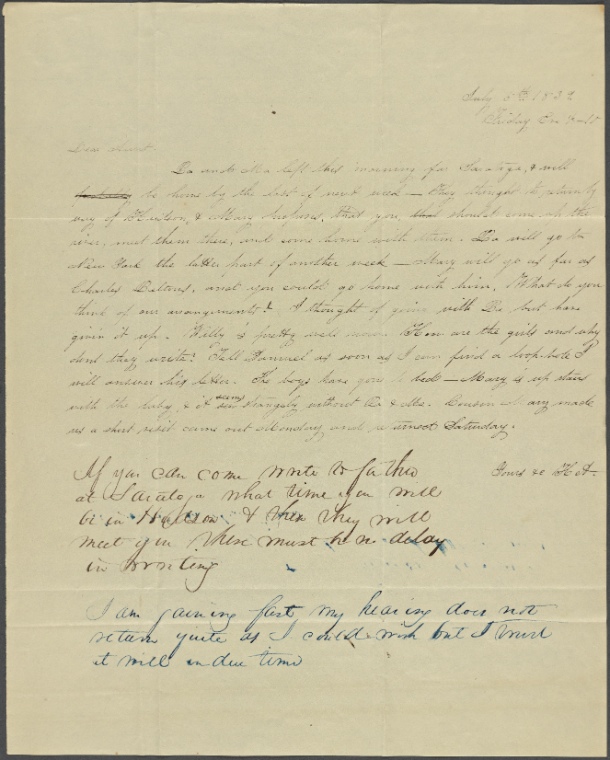 July 6th 1832
Friday
Dear Aunt.
Pa and Ma left this morning for Saratoga, & will
be home by the last of next week — they thought to return by
way of Hudson, & Mary proposes, that you should come up the
river, meet them there, and come home with them. Pa will go to
New York the latter part of another week — Mary will go as far as
Charles and you could go home with him. What do you
think of our arrangements? I thought of going with Pa but have
given it up. Willy is pretty well now. How are the girls and why
dont they write? Tell Samuel as soon as I can find a loop-hole I
will answer his letter. The boys have gone to bed — Mary is up stairs
with the baby, & it seems strangely without Pa & Ma. Cousin Mary made
us a short visit came out Monday and returned Saturday.
Yours &c H. A.
If you can come write to father
at Saratoga what time you will
be in Hudson & then they will
meet you there must be no delay
in writing
I am gaining fast my hearing does not
return quite as I could wish but I trust
it will in due time